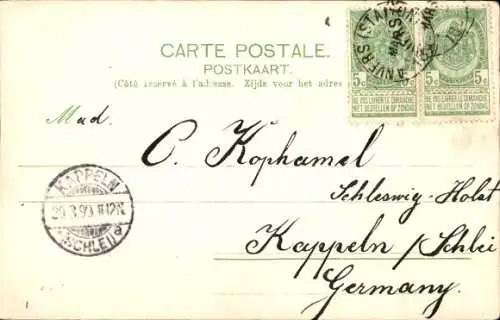 CARTE POSTALE.
POSTKAART.
(Côté réservé à l'adresse. Zijde voor het adres
ANVERS (STATION
5c 5c
NE PAS LIVRER LE DIMANCHE NE PAS LIVRER LE DIMANCHE
NIET BESTELLEN OP ZONDAG NIET BESTELLEN OP ZONDAG
Mad.
C. Kophamel
Schleswig-Holst
Kappeln / Schlei
Germany.
KAPPELN
(SCHLEI)